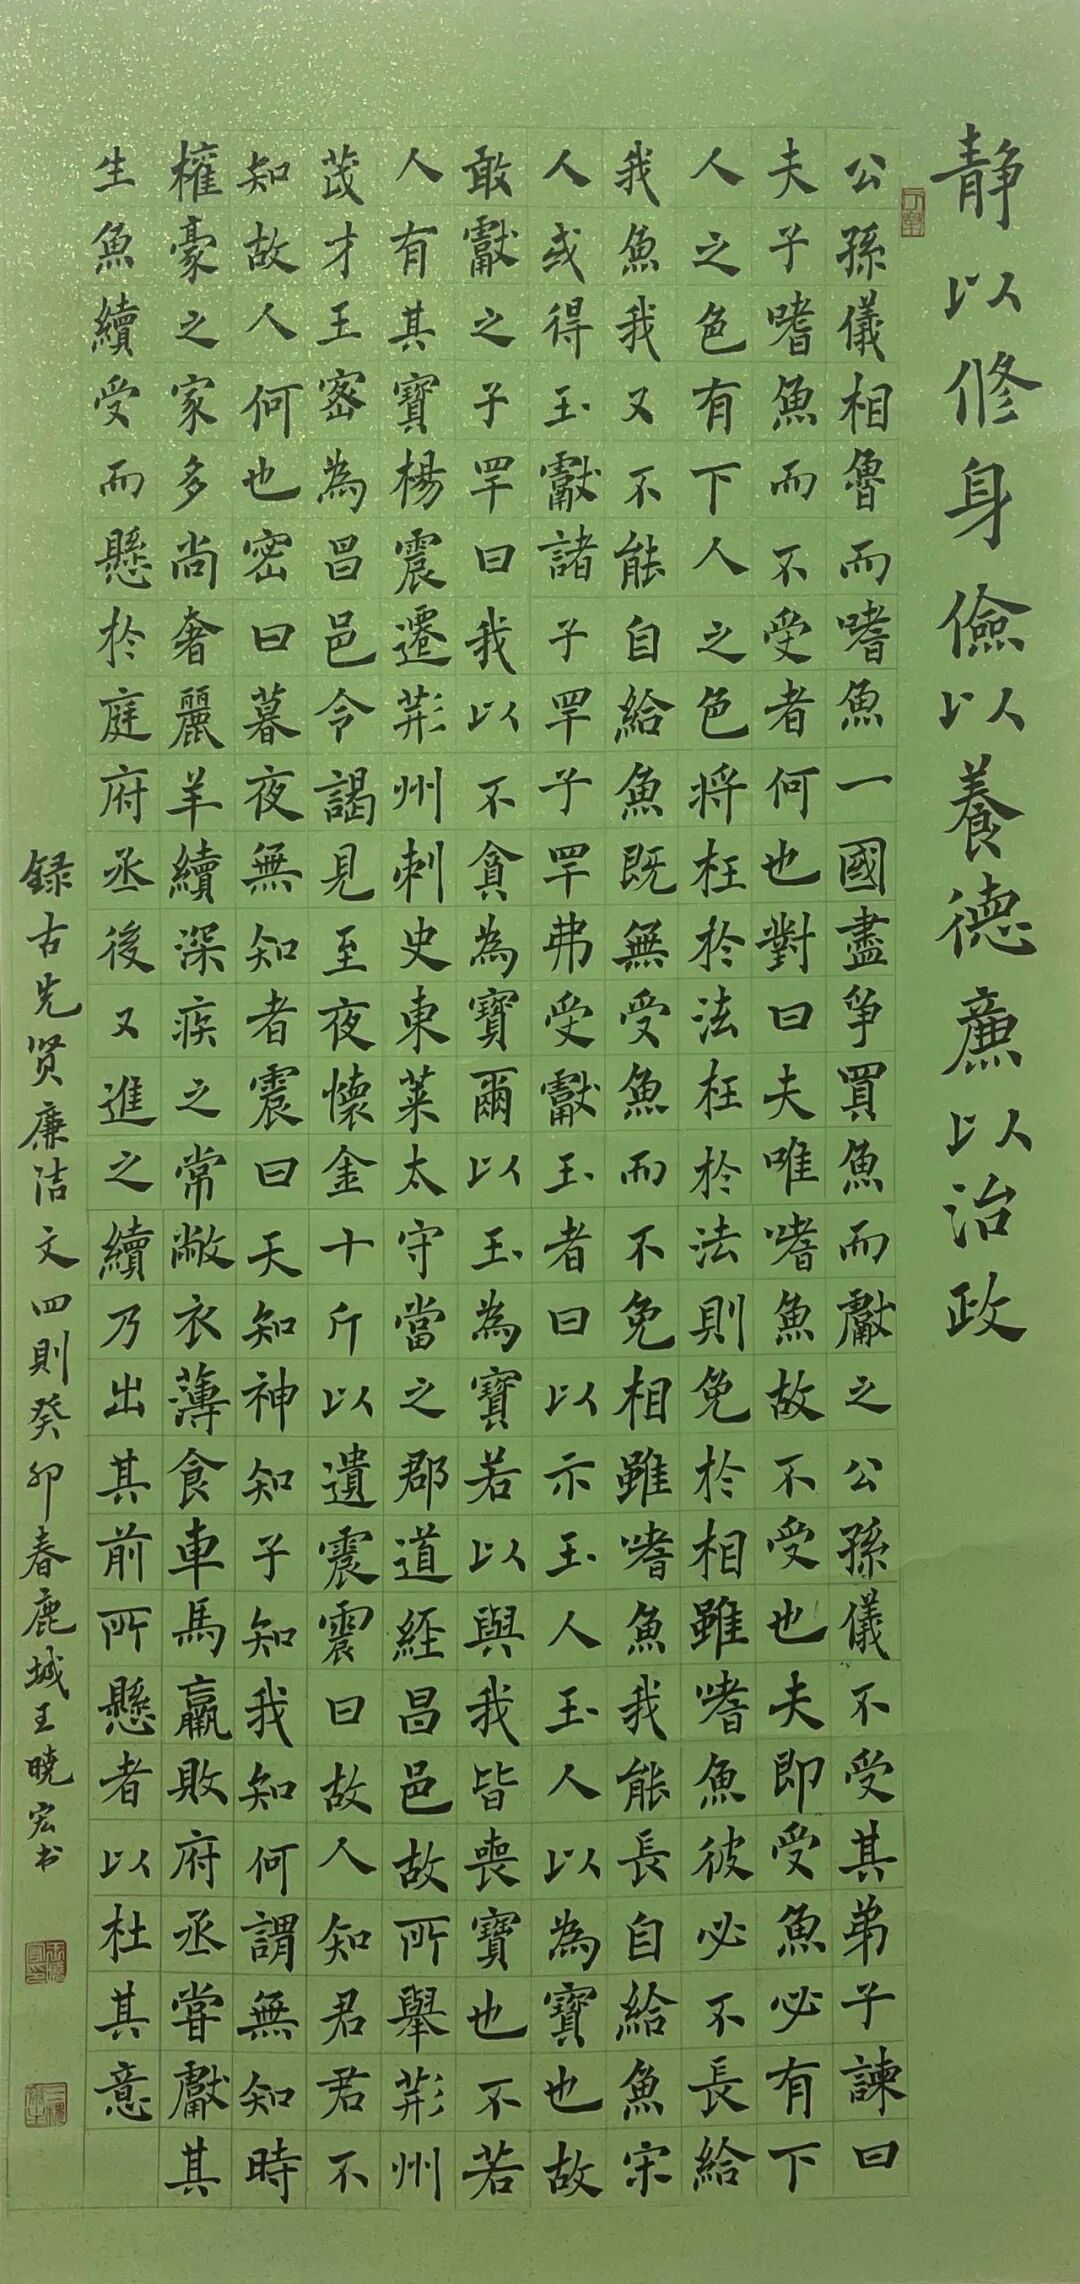 靜以修身儉以養德廉以治政
公孫儀相魯而嗜魚一國盡爭買魚而獻之公孫儀不受其弟子諫曰
夫子嗜魚而不受者何也對曰夫唯嗜魚故不受也夫即受魚必有下
人之色有下人之色將枉於法枉於法則免於相雖嗜魚彼必不長給
我魚我又不能自給魚既無受魚而不免相雖嗜魚我能長自給魚宋
人或得玉獻諸子罕子罕弗受獻玉者曰以示玉人玉人以為寶也故
敢獻之子罕曰我以不貪為寶爾以玉為寶若以與我皆喪寶也不若
人有其寶楊震遷荊州刺史東萊太守當之郡道經昌邑故所舉荊州
茂才王密為昌邑令謁見至夜懷金十斤以遺震震曰故人知君君不
知故人何也密曰暮夜無知者震曰天知神知子知我知何謂無知時
權豪之家多尚奢麗羊續深疾之常敝衣薄食車馬羸敗府丞嘗獻其
生魚續受而懸於庭府丞後又進之續乃出其前所懸者以杜其意
録古先贤廉洁文四則癸卯春鹿城王曉宏书